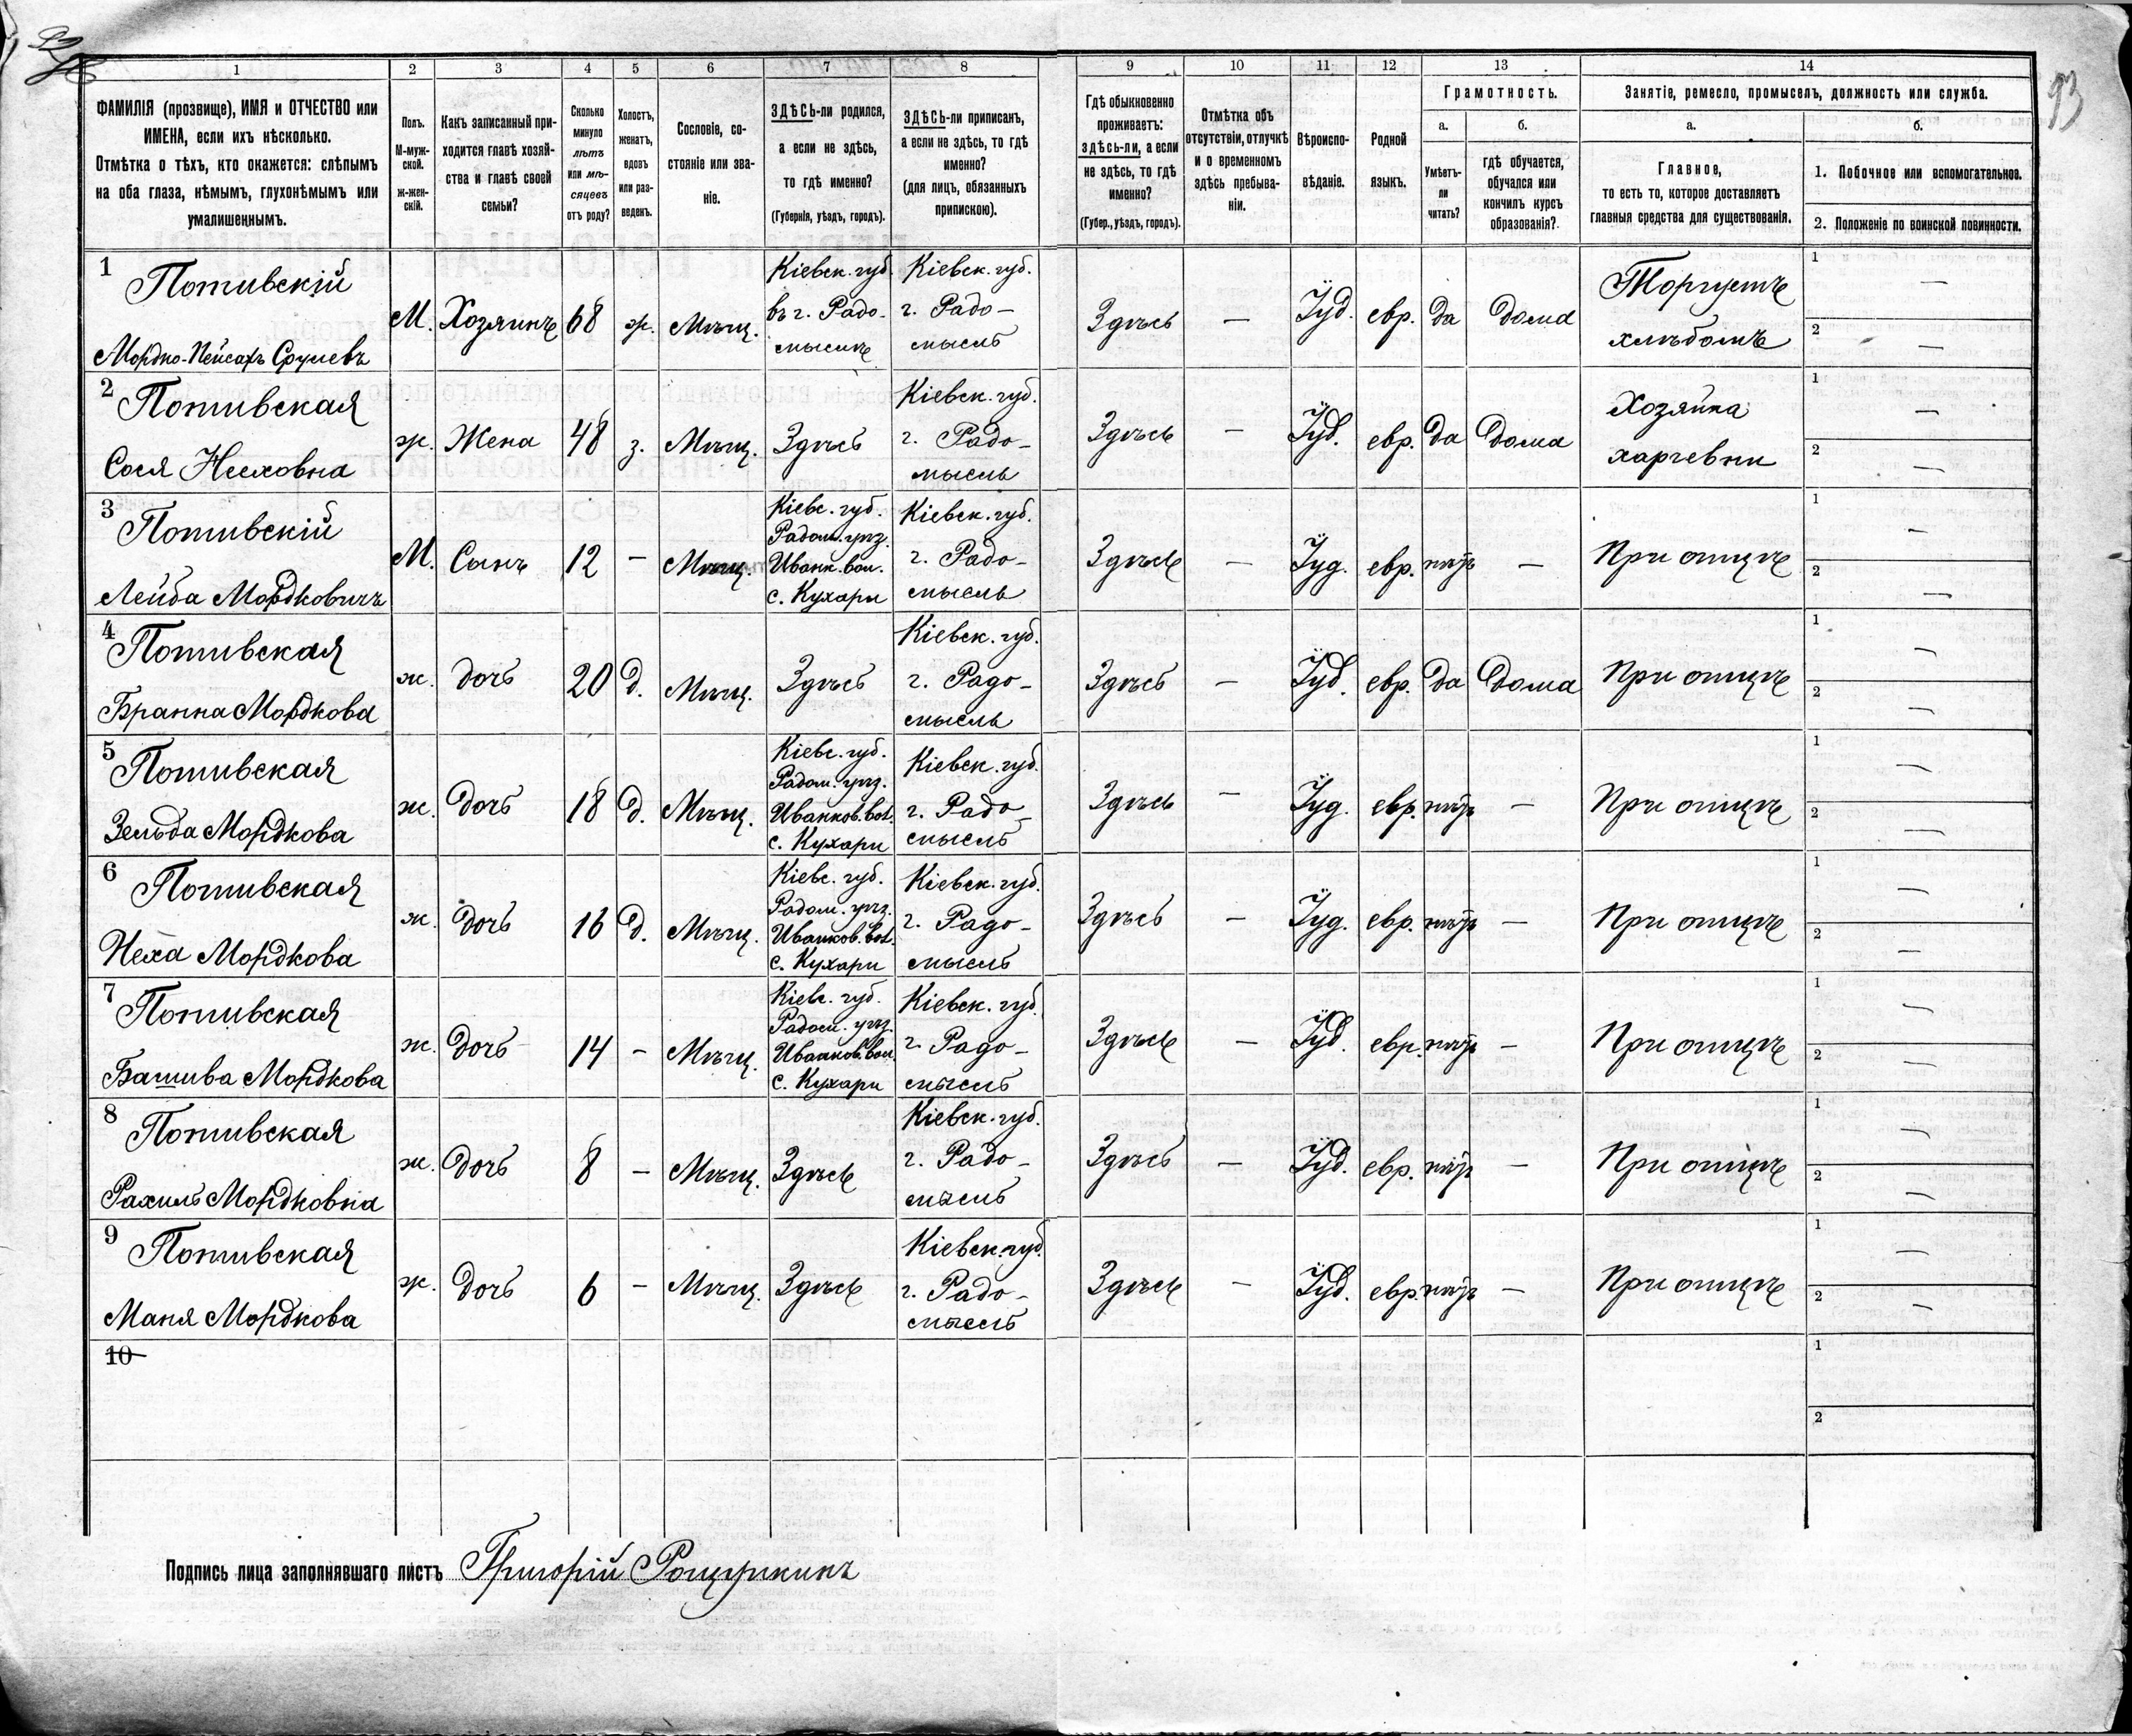 93
1 2 3 4 5 6 7 8 9 10 11 12 13 14
ФАМИЛІЯ (прозвище), ИМЯ и ОТЧЕСТВО или
ИМЕНА, если ихъ нѣсколько.
Отмѣтка о тѣхъ, кто окажется: слѣпымъ
на оба глаза, нѣмымъ, глухонѣмымъ или
умалишеннымъ.
Полъ.
М-муж-
ской.
ж-жен-
скій.
Какъ записанный при-
ходится главѣ хозяй-
ства и главѣ своей
семьи?
Сколько
минуло
лѣтъ
или мѣ-
сяцевъ
отъ роду?
Холостъ,
женатъ,
вдовъ
или раз-
веденъ.
Сословіе, со-
стояніе или зва-
ніе.
ЗДѢСЬ-ли родился,
а если не здѣсь,
то гдѣ именно?
(Губернія, уѣздъ, городъ).
ЗДѢСЬ-ли приписанъ,
а если не здѣсь, то гдѣ
именно?
(для лицъ, обязанныхъ
припискою).
Гдѣ обыкновенно
проживаетъ:
здѣсь-ли, а если
не здѣсь, то гдѣ
именно?
(Губер., уѣздъ, городъ).
Отмѣтка объ
отсутствіи, отлучкѣ
и о временномъ
здѣсь пребыва-
ніи.
Вѣроиспо-
вѣданіе.
Родной
языкъ.
Грамотность.
а.
Умѣетъ-
ли
читать?
б.
гдѣ обучается,
обучался или
кончилъ курсъ
образованія?
Занятіе, ремесло, промыселъ, должность или служба.
а.
Главное,
то есть то, которое доставляетъ
главныя средства для существованія.
б.
1. Побочное или вспомогательное.
2. Положеніе по воинской повинности.
1
Потивскій
Мордко-Пейсахъ Срулевъ
М.
Хозяинъ
68
ж.
Мѣщ.
Кіевск. губ.
въ г. Радо-
мыслѣ
Кіевск. губ.
г. Радо-
мысль
Здѣсь
—
Іуд.
евр.
да
дома
Торгуетъ
хлѣбомъ
1 —
2 —
2
Потивская
Сося Нуховна
ж.
Жена
48
з.
Мѣщ.
Здѣсь
Кіевск. губ.
г. Радо-
мысль
Здѣсь
—
Іуд.
евр.
да
дома
Хозяйка
харчевни
1 —
2 —
3
Потивскій
Лейба Мордковичъ
М.
Сынъ
12
—
Мѣщ.
Кіевс. губ.
Радом. уѣз.
Иванк. вол.
с. Кухари
Кіевск. губ.
г. Радо-
мысль
Здѣсь
—
Іуд.
евр.
нѣтъ
—
При отцѣ
1 —
2 —
4
Потивская
Бранна Мордкова
ж.
дочь
20
д.
Мѣщ.
Здѣсь
Кіевск. губ.
г. Радо-
мысль
Здѣсь
—
Іуд.
евр.
да
дома
При отцѣ
1 —
2 —
5
Потивская
Зельда Мордкова
ж.
дочь
18
д.
Мѣщ.
Кіевс. губ.
Радом. уѣз.
Иванков. вол.
с. Кухари
Кіевск. губ.
г. Радо-
мысль
Здѣсь
—
Іуд.
евр.
нѣтъ
—
При отцѣ
1 —
2 —
6
Потивская
Неха Мордкова
ж.
дочь
16
д.
Мѣщ.
Кіевс. губ.
Радом. уѣз.
Иванков. вол.
с. Кухари
Кіевск. губ.
г. Радо-
мысль
Здѣсь
—
Іуд.
евр.
нѣтъ
—
При отцѣ
1 —
2 —
7
Потивская
Башива Мордкова
ж.
дочь
14
—
Мѣщ.
Кіевс. губ.
Радом. уѣз.
Иванков. вол.
с. Кухари
Кіевск. губ.
г. Радо-
мысль
Здѣсь
—
Іуд.
евр.
нѣтъ
—
При отцѣ
1 —
2 —
8
Потивская
Рахиль Мордковна
ж.
дочь
8
—
Мѣщ.
Здѣсь
Кіевск. губ.
г. Радо-
мысль
Здѣсь
—
Іуд.
евр.
нѣтъ
—
При отцѣ
1 —
2 —
9
Потивская
Маня Мордкова
ж.
дочь
6
—
Мѣщ.
Здѣсь
Кіевск. губ.
г. Радо-
мысль
Здѣсь
—
Іуд.
евр.
нѣтъ
—
При отцѣ
1 —
2 —
10
1
2
Подпись лица заполнявшаго листъ Григорій